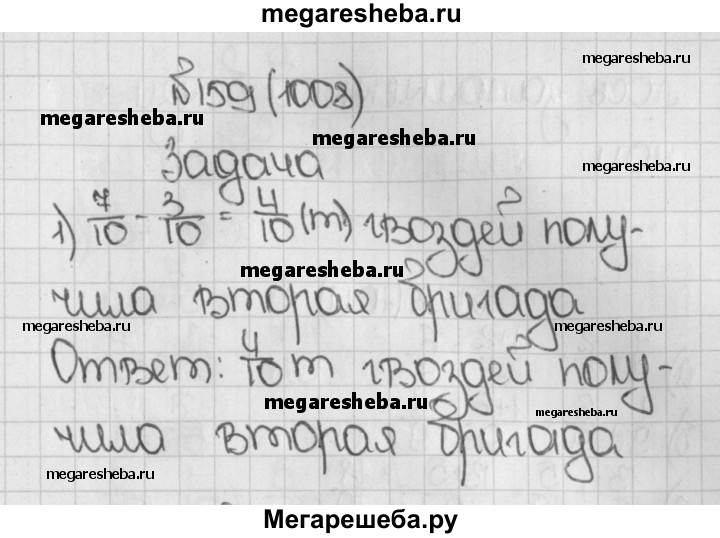 megaresheba.ru
megaresheba.ru
№159 (1008)
megaresheba.ru
megaresheba.ru
Задача
1) 7/10 - 3/10 = 4/10 (т) гвоздей полу-
megaresheba.ru
чила вторая бригада
megaresheba.ru megaresheba.ru
Ответ: 4/10 т гвоздей полу-
megaresheba.ru
megaresheba.ru
чила вторая бригада
megaresheba.ru
Мегарешеба.ру